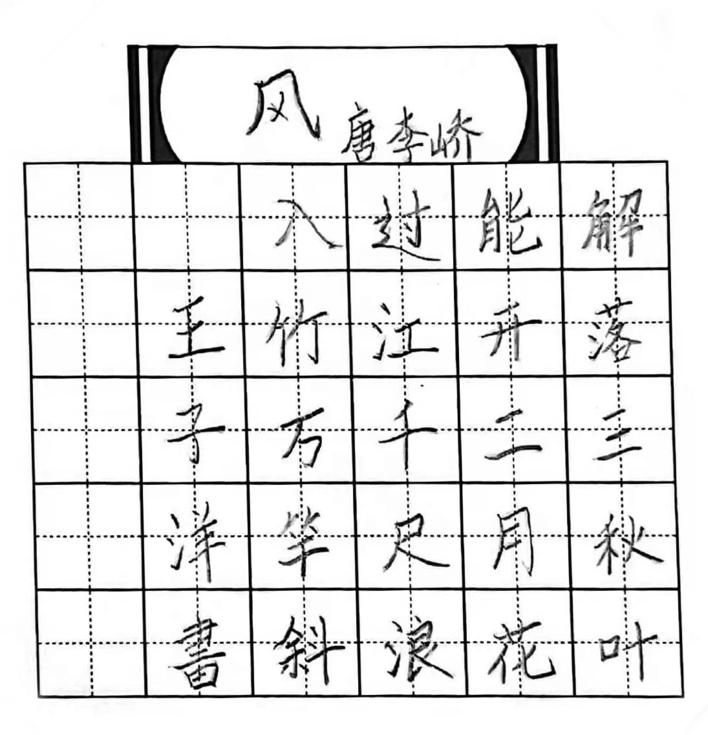 风
唐李峤
解落三秋叶
能开二月花
过江千尺浪
入竹万竿斜
王子洋書